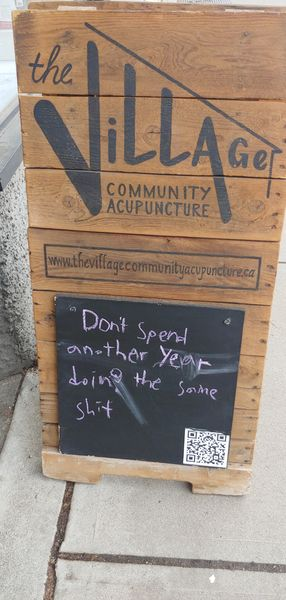 the
ViLLAGe
COMMUNITY
ACUPUNCTURE
www.thevillagecommunityacupuncture.ca
Don't Spend
another Year
doing the Same
shit